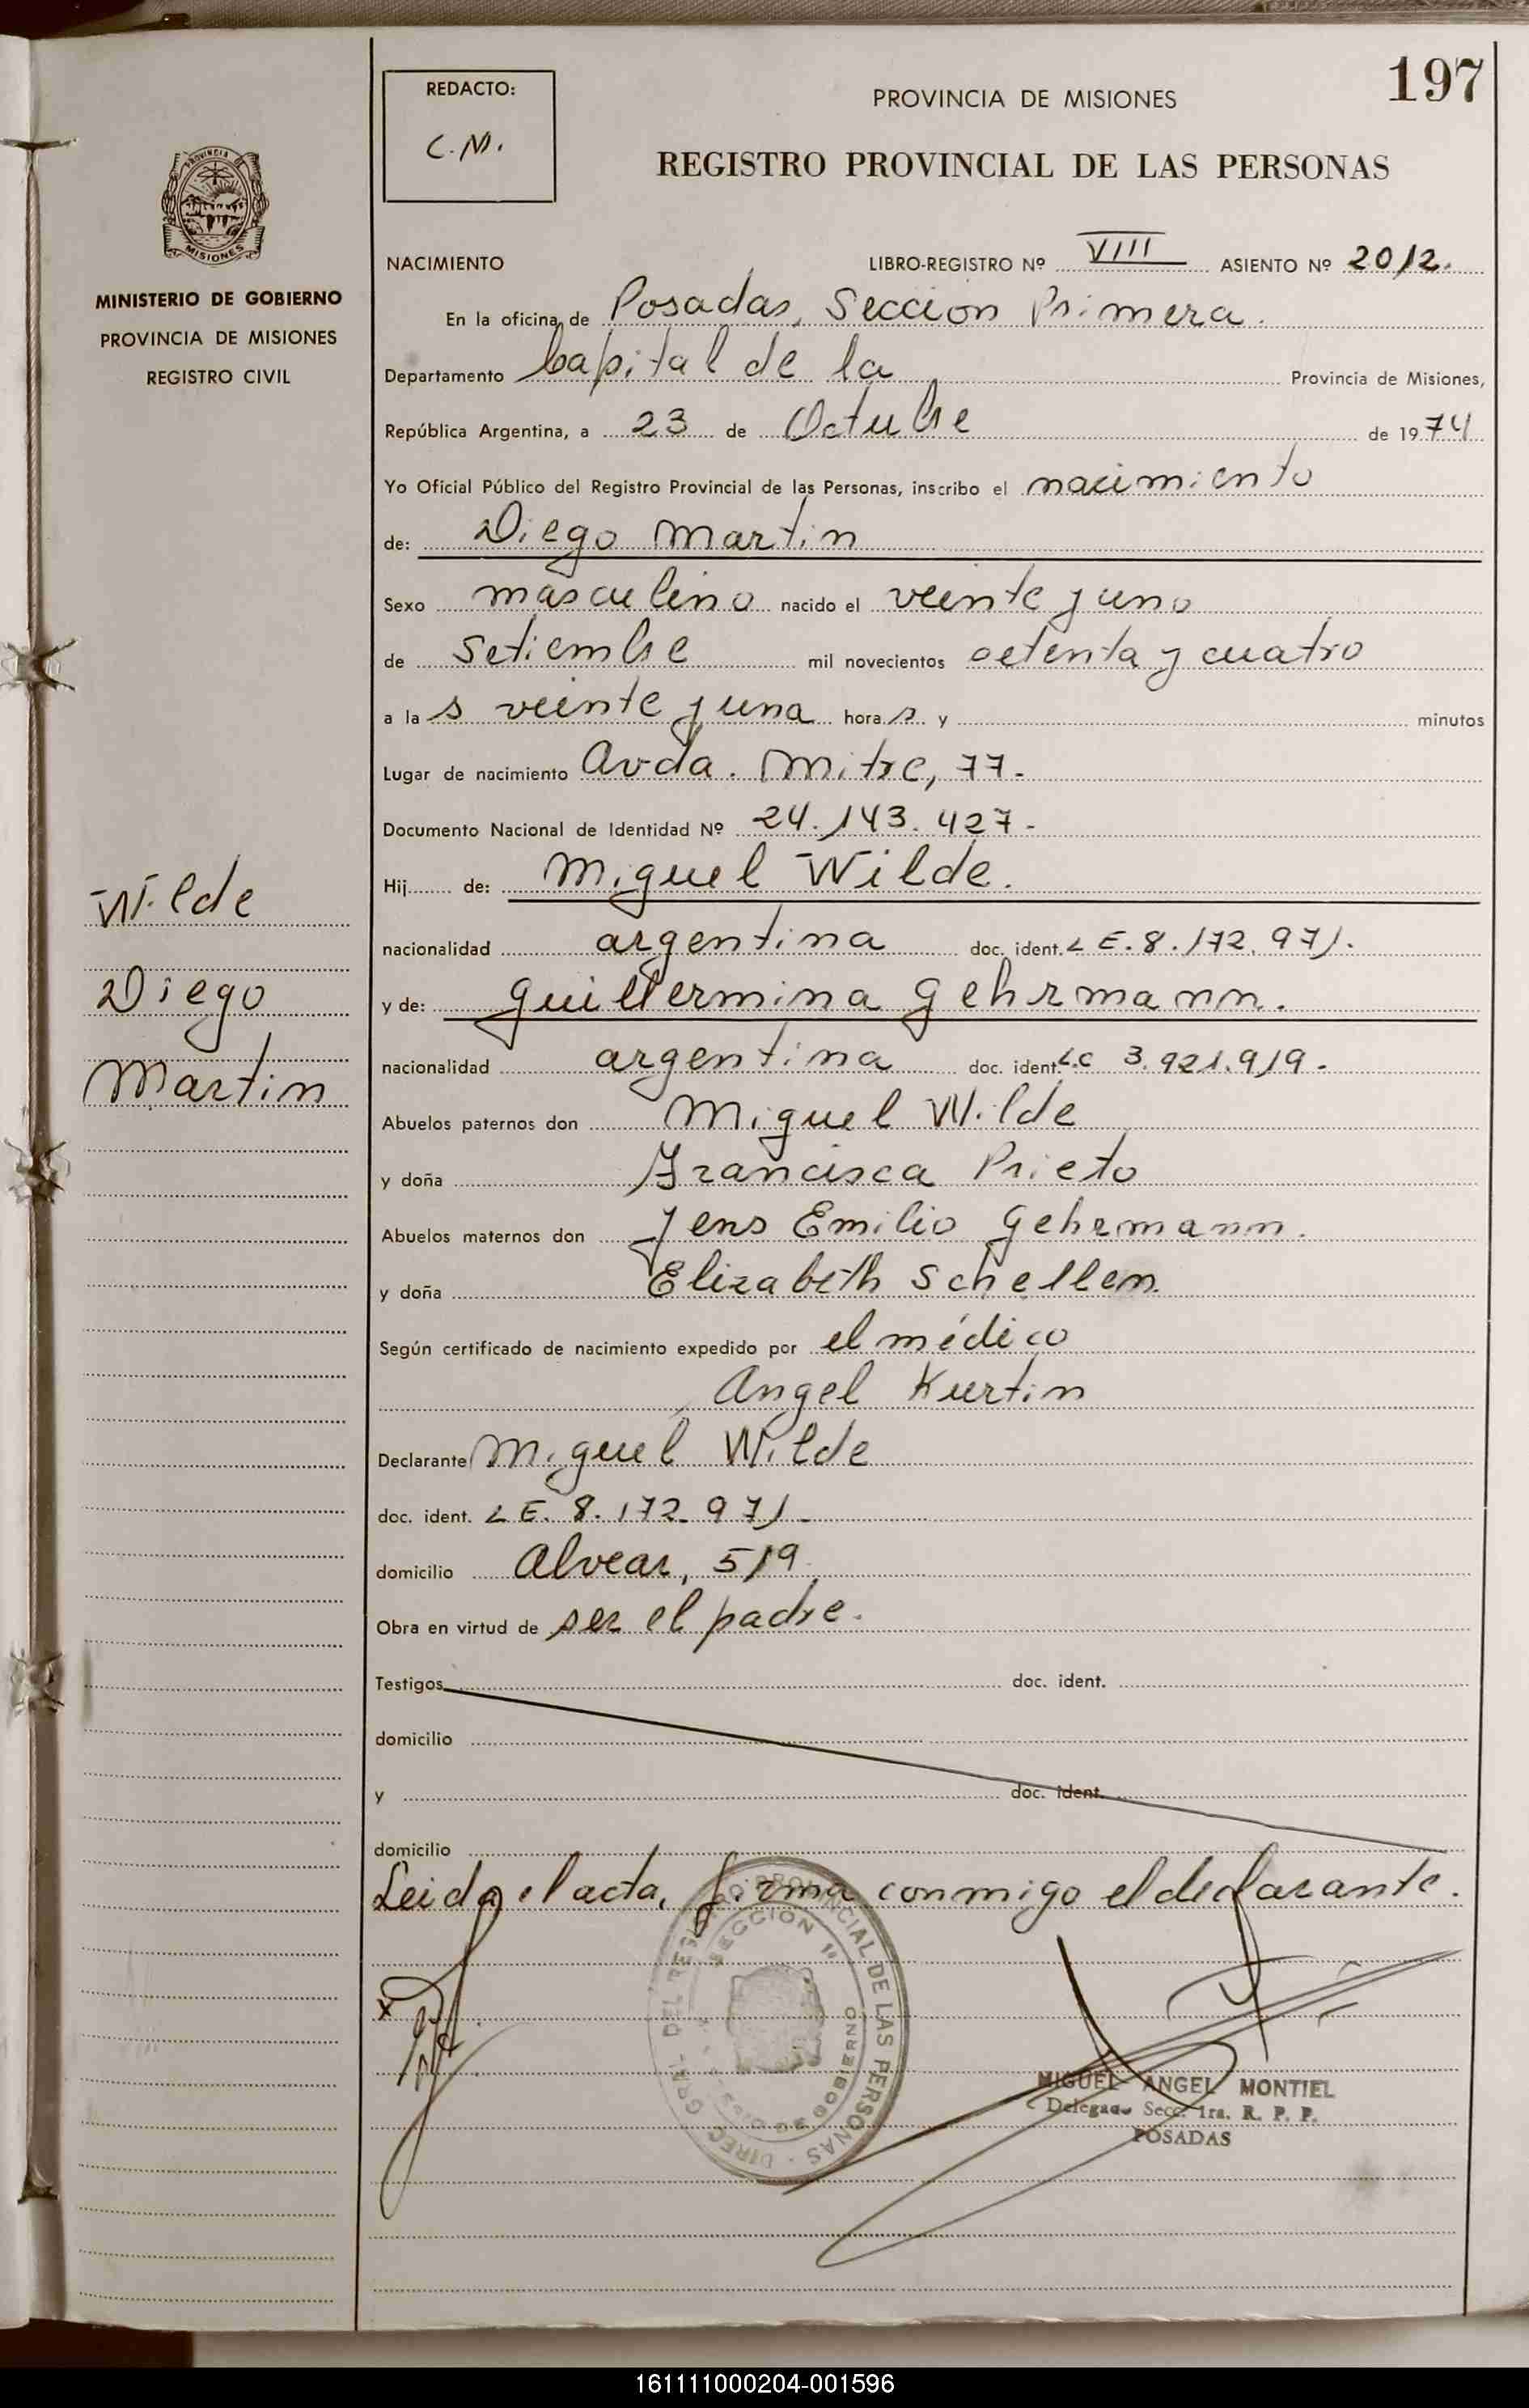 197
REDACTO:
C. M.
PROVINCIA DE MISIONES
REGISTRO PROVINCIAL DE LAS PERSONAS
PROVINCIA
MISIONES
MINISTERIO DE GOBIERNO
PROVINCIA DE MISIONES
REGISTRO CIVIL
NACIMIENTO LIBRO-REGISTRO Nº VIII ASIENTO Nº 2012.
En la oficina de Posadas, Sección Primera.
Departamento Capital de la Provincia de Misiones,
República Argentina, a 23 de Octubre de 1974
Yo Oficial Público del Registro Provincial de las Personas, inscribo el nacimiento
de: Diego Martin
Sexo masculino nacido el veinte y uno
de Setiembre mil novecientos setenta y cuatro
a las veinte y una horas y minutos
Lugar de nacimiento Avda. Mitre, 77.-
Documento Nacional de Identidad Nº 24.143.427.-
Hij de: Miguel Wilde.
nacionalidad argentina doc. ident. L E. 8.172.971.
y de: Guillermina Gehrmann.
nacionalidad argentina doc. ident. L.C 3.921.919.
Abuelos paternos don Miguel Wilde
y doña Francisca Prieto
Abuelos maternos don Jens Emilio Gehrmann.
y doña Elizabeth Schellem.
Según certificado de nacimiento expedido por el médico
Angel Kurtin
Declarante Miguel Wilde
doc. ident. L E. 8.172.971.-
domicilio Alvear, 519.
Obra en virtud de ser el padre.
Testigos doc. ident.
domicilio
y doc. ident.
domicilio
Leida el acta, firma conmigo el declarante.
Wilde
Diego
Martin
DIREC. GRAL. DEL REGISTRO PROVINCIAL DE LAS PERSONAS
SECCION 1ª
GOBIERNO
MIGUEL ANGEL MONTIEL
Delegado Secc. 1ra. R. P. P.
POSADAS
161111000204-001596